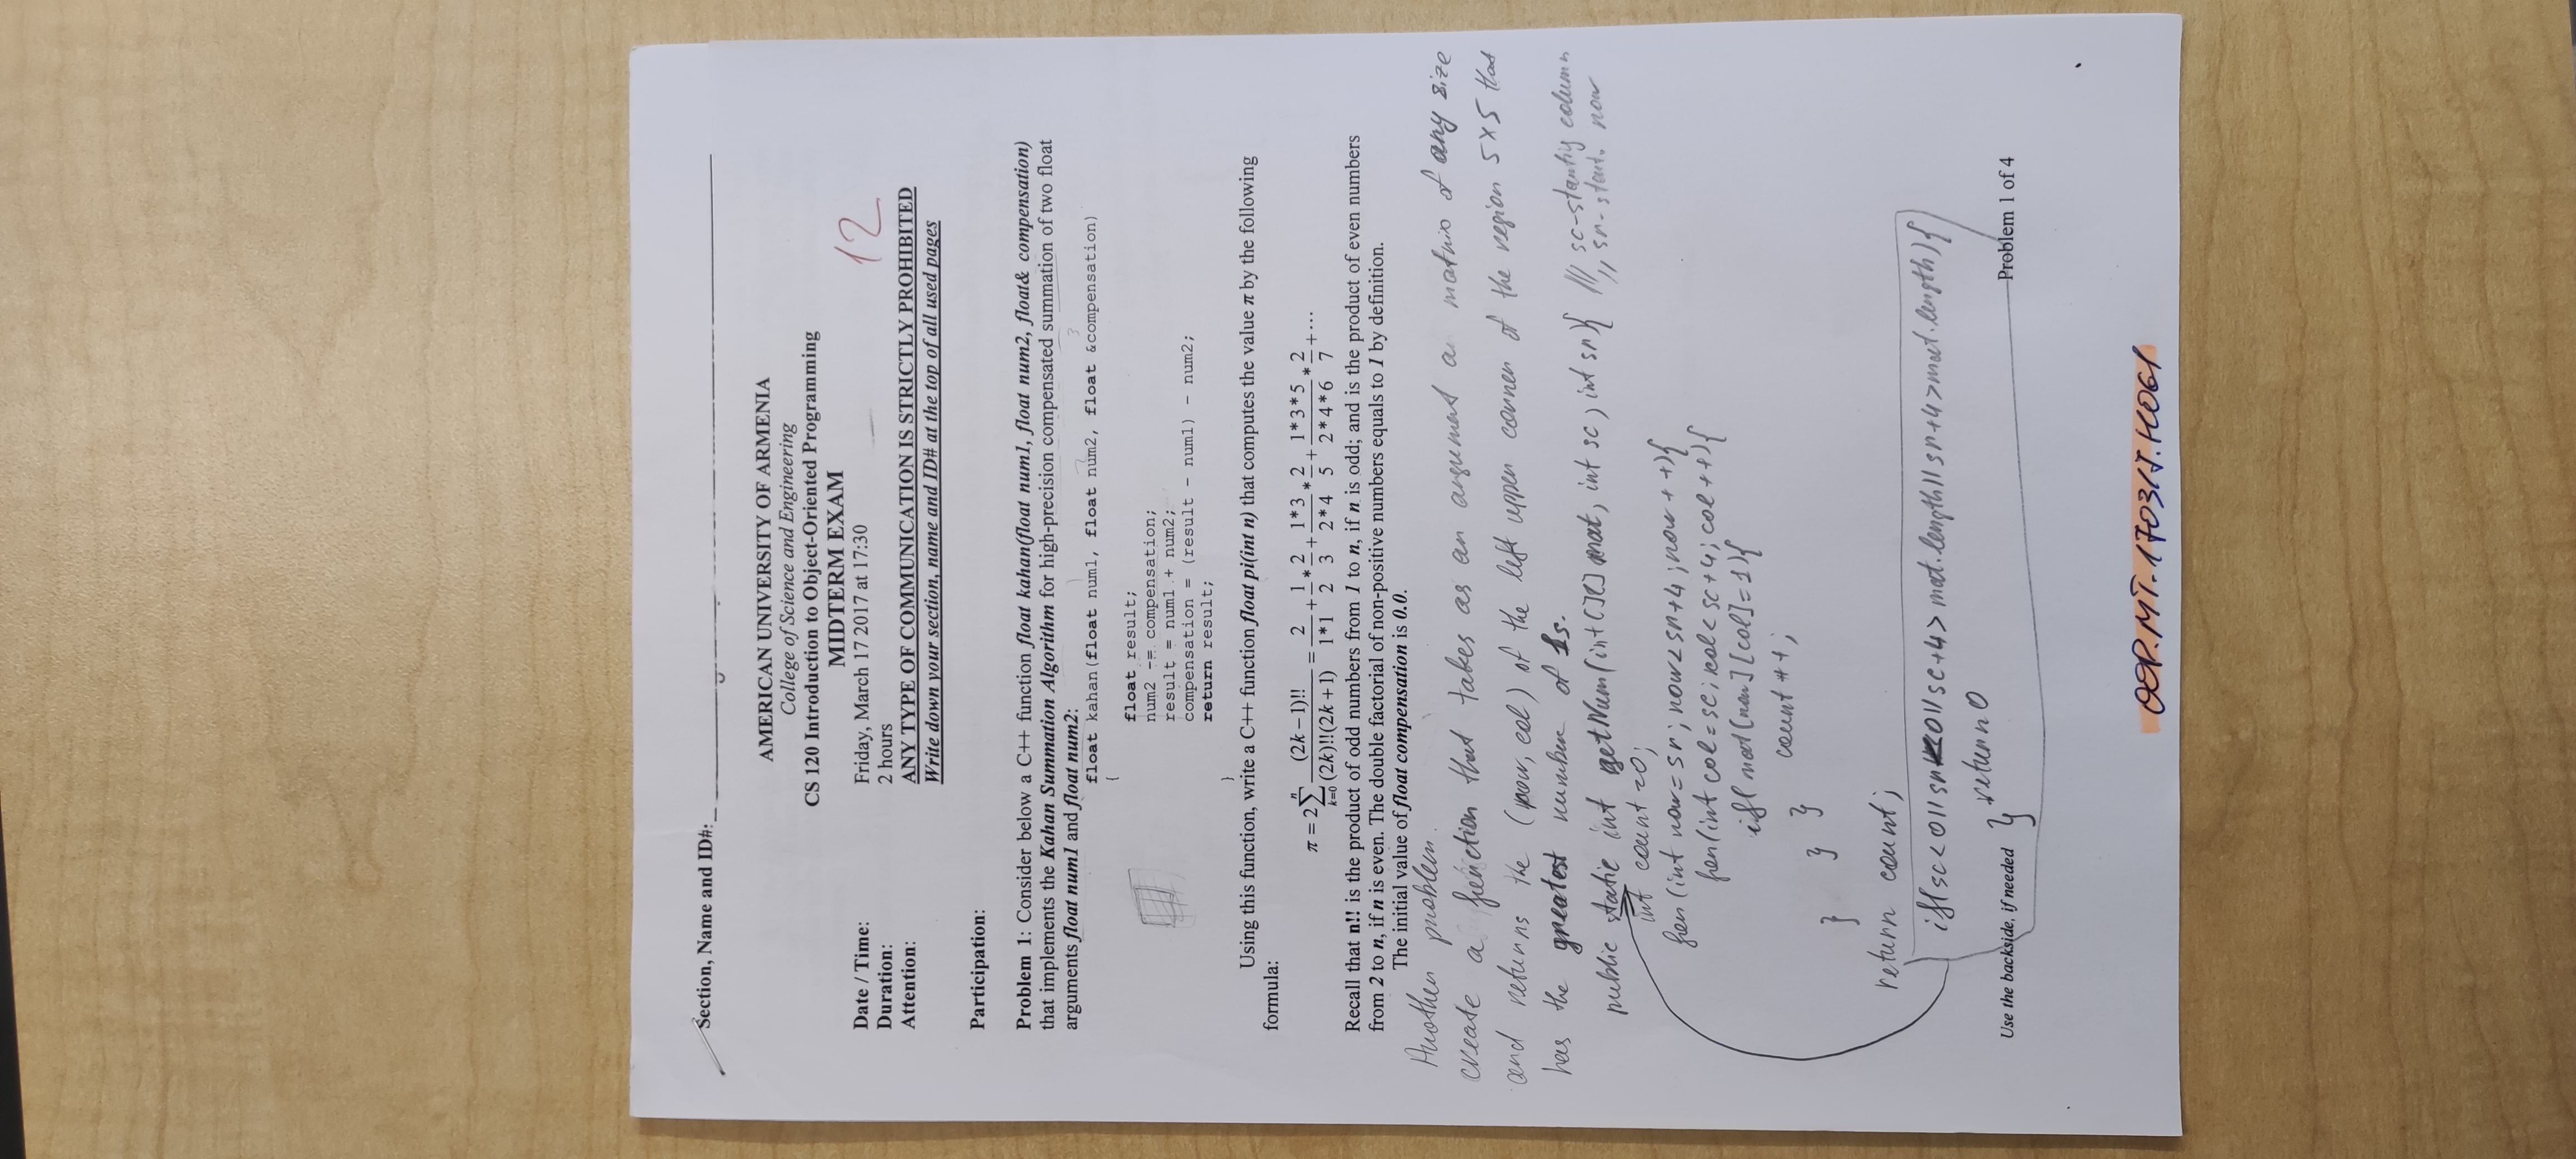 Section, Name and ID#:
AMERICAN UNIVERSITY OF ARMENIA
College of Science and Engineering
CS 120 Introduction to Object-Oriented Programming
MIDTERM EXAM
12
Date / Time: Friday, March 17 2017 at 17:30
Duration: 2 hours
Attention: ANY TYPE OF COMMUNICATION IS STRICTLY PROHIBITED
Write down your section, name and ID# at the top of all used pages
Participation:
Problem 1: Consider below a C++ function float kahan(float num1, float num2, float& compensation)
that implements the Kahan Summation Algorithm for high-precision compensated summation of two float
arguments float num1 and float num2:
float kahan(float num1, float num2, float &compensation)
{
float result;
num2 -= compensation;
result = num1 + num2;
compensation = (result - num1) - num2;
return result;
}
Using this function, write a C++ function float pi(int n) that computes the value π by the following
formula:
π = 2 ∑_{k=0}^{n} (2k−1)!! / ((2k)!!(2k+1)) = 2/(1*1) + 1/2 * 2/3 + (1*3)/(2*4) * 2/5 + (1*3*5)/(2*4*6) * 2/7 + ...
Recall that n!! is the product of odd numbers from 1 to n, if n is odd; and is the product of even numbers
from 2 to n, if n is even. The double factorial of non-positive numbers equals to 1 by definition.
The initial value of float compensation is 0.0.
Another problem.
create a function that takes as an argument a matrix of any size
and returns the (row, col) of the left upper corner of the region 5x5 that
has the greatest number of 1s.
public static int getNum(int[][] mat, int sc, int sr){ /// sc-starting column
// sr-start. row
int count=0;
for(int row=sr; row<sr+4; row++){
for(int col=sc; col<sc+4; col++){
if(mat[row][col]=1){
count++;
}
}
}
return count;
if(sc<0||sr<0||sc+4>mat.length||sr+4>mat.length){
return 0
}
Use the backside, if needed Problem 1 of 4
OOP.MT.170317.K061